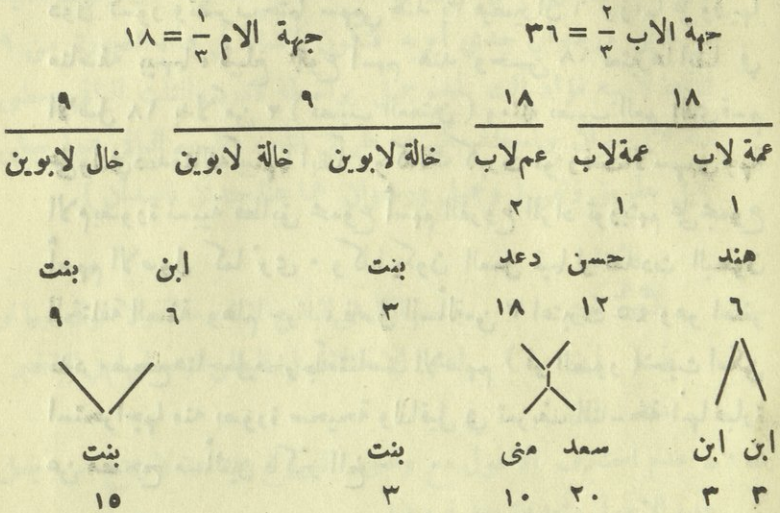 جهة الاب ٢/٣ = ٣٦ جهة الام ١/٣ = ١٨
١٨ ١٨ ٩ ٩
عمة لاب عمة لاب عم لاب خالة لابوين خالة لابوين خال لابوين
١ ١ ٢
هند حسن دعد بنت ابن بنت
٦ ١٢ ١٨ ٣ ٦ ٩
ابن ابن سعد منى بنت بنت
٣ ٣ ٢٠ ١٠ ٣ ١٥